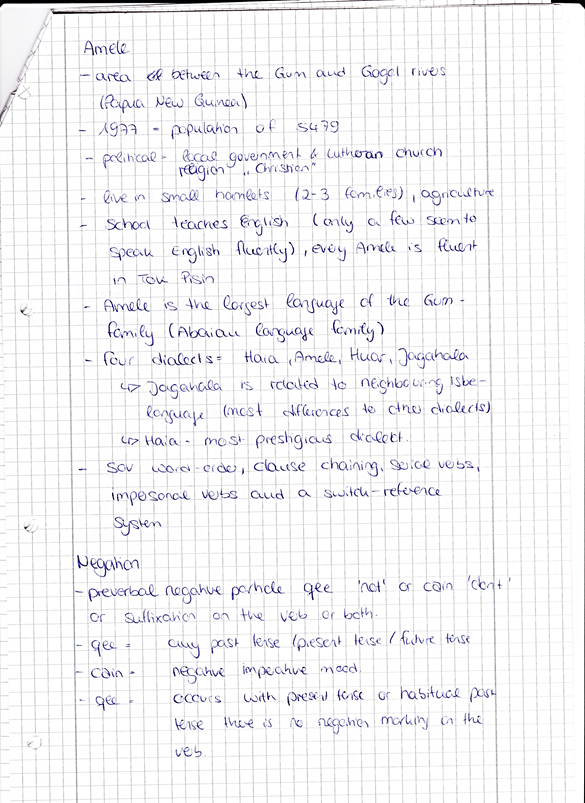 Amele
- area between the Gum and Gogol rivers
(Papua New Guinea)
- 1977 - population of 5479
- political - local government & Lutheran church
religion „Christian"
- live in small hamlets (2-3 families), agriculture
- school teaches English (only a few seem to
speak English fluently), every Amele is fluent
in Tok Pisin
- Amele is the largest language of the Gum -
family (Abaian language family)
- four dialects = Haia, Amele, Huar, Jagahala
↳ Jagahala is related to neighbouring Isbe-
language (most differences to other dialects)
↳ Haia - most prestigious dialect.
- SOV word-order, clause chaining, serial verbs,
impersonal verbs and a switch-reference
system
Negation
- preverbal negative particle qee 'not' or cain 'dont'
or suffixation on the verb or both.
- qee = any past tense / present tense / future tense
- cain = negative imperative mood
- qee = occurs with present tense or habitual past
tense there is no negation marking in the
verb